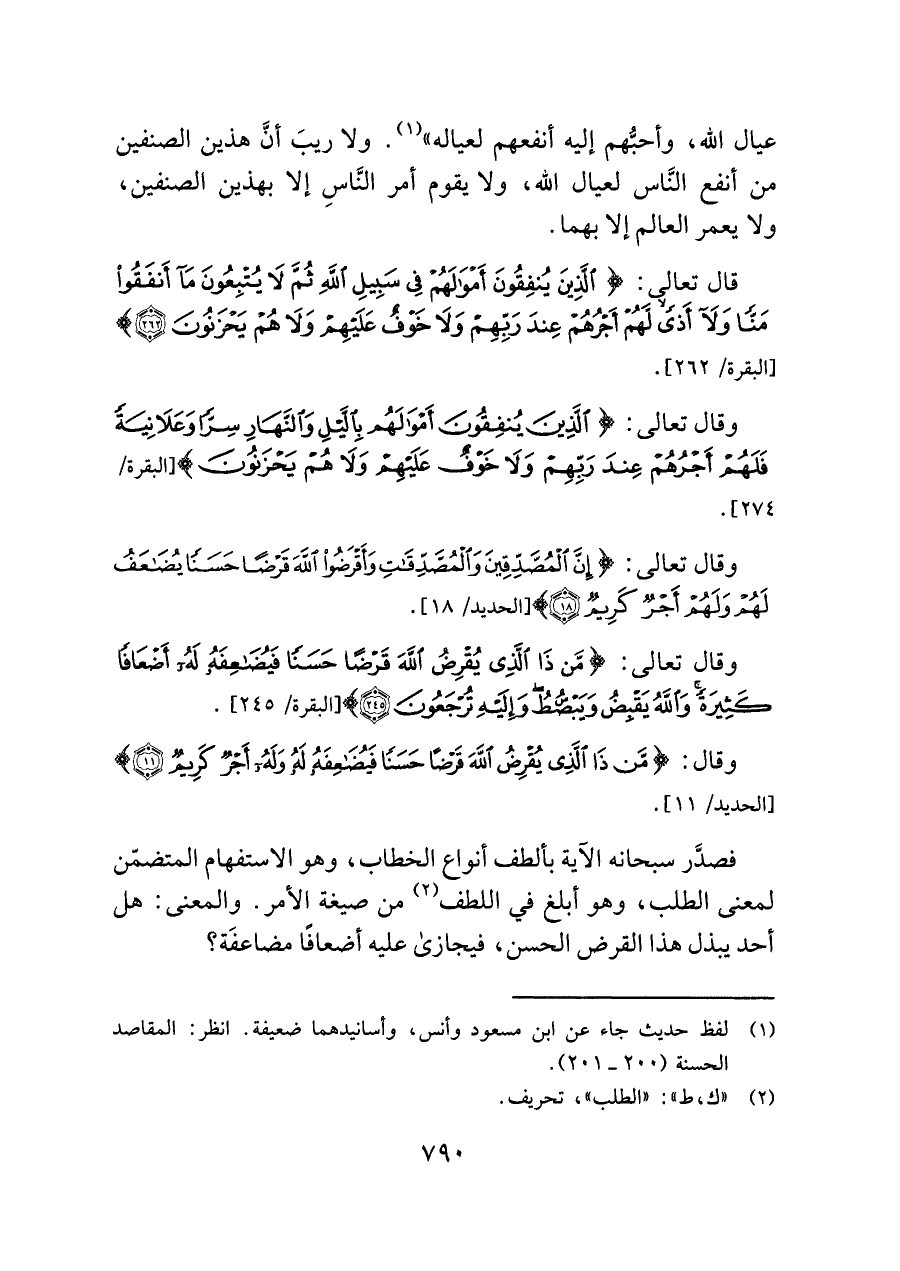 عيال الله، وأحبُّهم إليه أنفعهم لعياله»(١). ولا ريبَ أنَّ هذين الصنفين
من أنفع النَّاس لعيال الله، ولا يقوم أمر النَّاسِ إلا بهذين الصنفين،
ولا يعمر العالم إلا بهما.
قال تعالى: ﴿ ٱلَّذِينَ يُنفِقُونَ أَمْوَٰلَهُمْ فِى سَبِيلِ ٱللَّهِ ثُمَّ لَا يُتْبِعُونَ مَآ أَنفَقُوا۟
مَنًّا وَلَآ أَذًىۙ لَّهُمْ أَجْرُهُمْ عِندَ رَبِّهِمْ وَلَا خَوْفٌ عَلَيْهِمْ وَلَا هُمْ يَحْزَنُونَ ٢٦٢﴾
[البقرة/ ٢٦٢].
وقال تعالى: ﴿ ٱلَّذِينَ يُنفِقُونَ أَمْوَٰلَهُم بِٱلَّيْلِ وَٱلنَّهَارِ سِرًّا وَعَلَانِيَةً
فَلَهُمْ أَجْرُهُمْ عِندَ رَبِّهِمْ وَلَا خَوْفٌ عَلَيْهِمْ وَلَا هُمْ يَحْزَنُونَ ﴾[البقرة/
٢٧٤].
وقال تعالى: ﴿ إِنَّ ٱلْمُصَّدِّقِينَ وَٱلْمُصَّدِّقَٰتِ وَأَقْرَضُوا۟ ٱللَّهَ قَرْضًا حَسَنًا يُضَٰعَفُ
لَهُمْ وَلَهُمْ أَجْرٌ كَرِيمٌ ١٨﴾[الحديد/ ١٨].
وقال تعالى: ﴿ مَّن ذَا ٱلَّذِى يُقْرِضُ ٱللَّهَ قَرْضًا حَسَنًا فَيُضَٰعِفَهُۥ لَهُۥٓ أَضْعَافًا
كَثِيرَةًۚ وَٱللَّهُ يَقْبِضُ وَيَبْصُۜطُ وَإِلَيْهِ تُرْجَعُونَ ٢٤٥﴾[البقرة/ ٢٤٥].
وقال: ﴿ مَّن ذَا ٱلَّذِى يُقْرِضُ ٱللَّهَ قَرْضًا حَسَنًا فَيُضَٰعِفَهُۥ لَهُۥ وَلَهُۥٓ أَجْرٌ كَرِيمٌ ١١﴾
[الحديد/ ١١].
فصدَّر سبحانه الآية بألطف أنواع الخطاب، وهو الاستفهام المتضمّن
لمعنى الطلب، وهو أبلغ في اللطف(٢) من صيغة الأمر. والمعنى: هل
أحد يبذل هذا القرض الحسن، فيجازىٰ عليه أضعافًا مضاعفَة؟
(١) لفظ حديث جاء عن ابن مسعود وأنس، وأسانيدهما ضعيفة. انظر: المقاصد
الحسنة (٢٠٠ ـ ٢٠١).
(٢) «ك،ط»: «الطلب»، تحريف.
٧٩٠